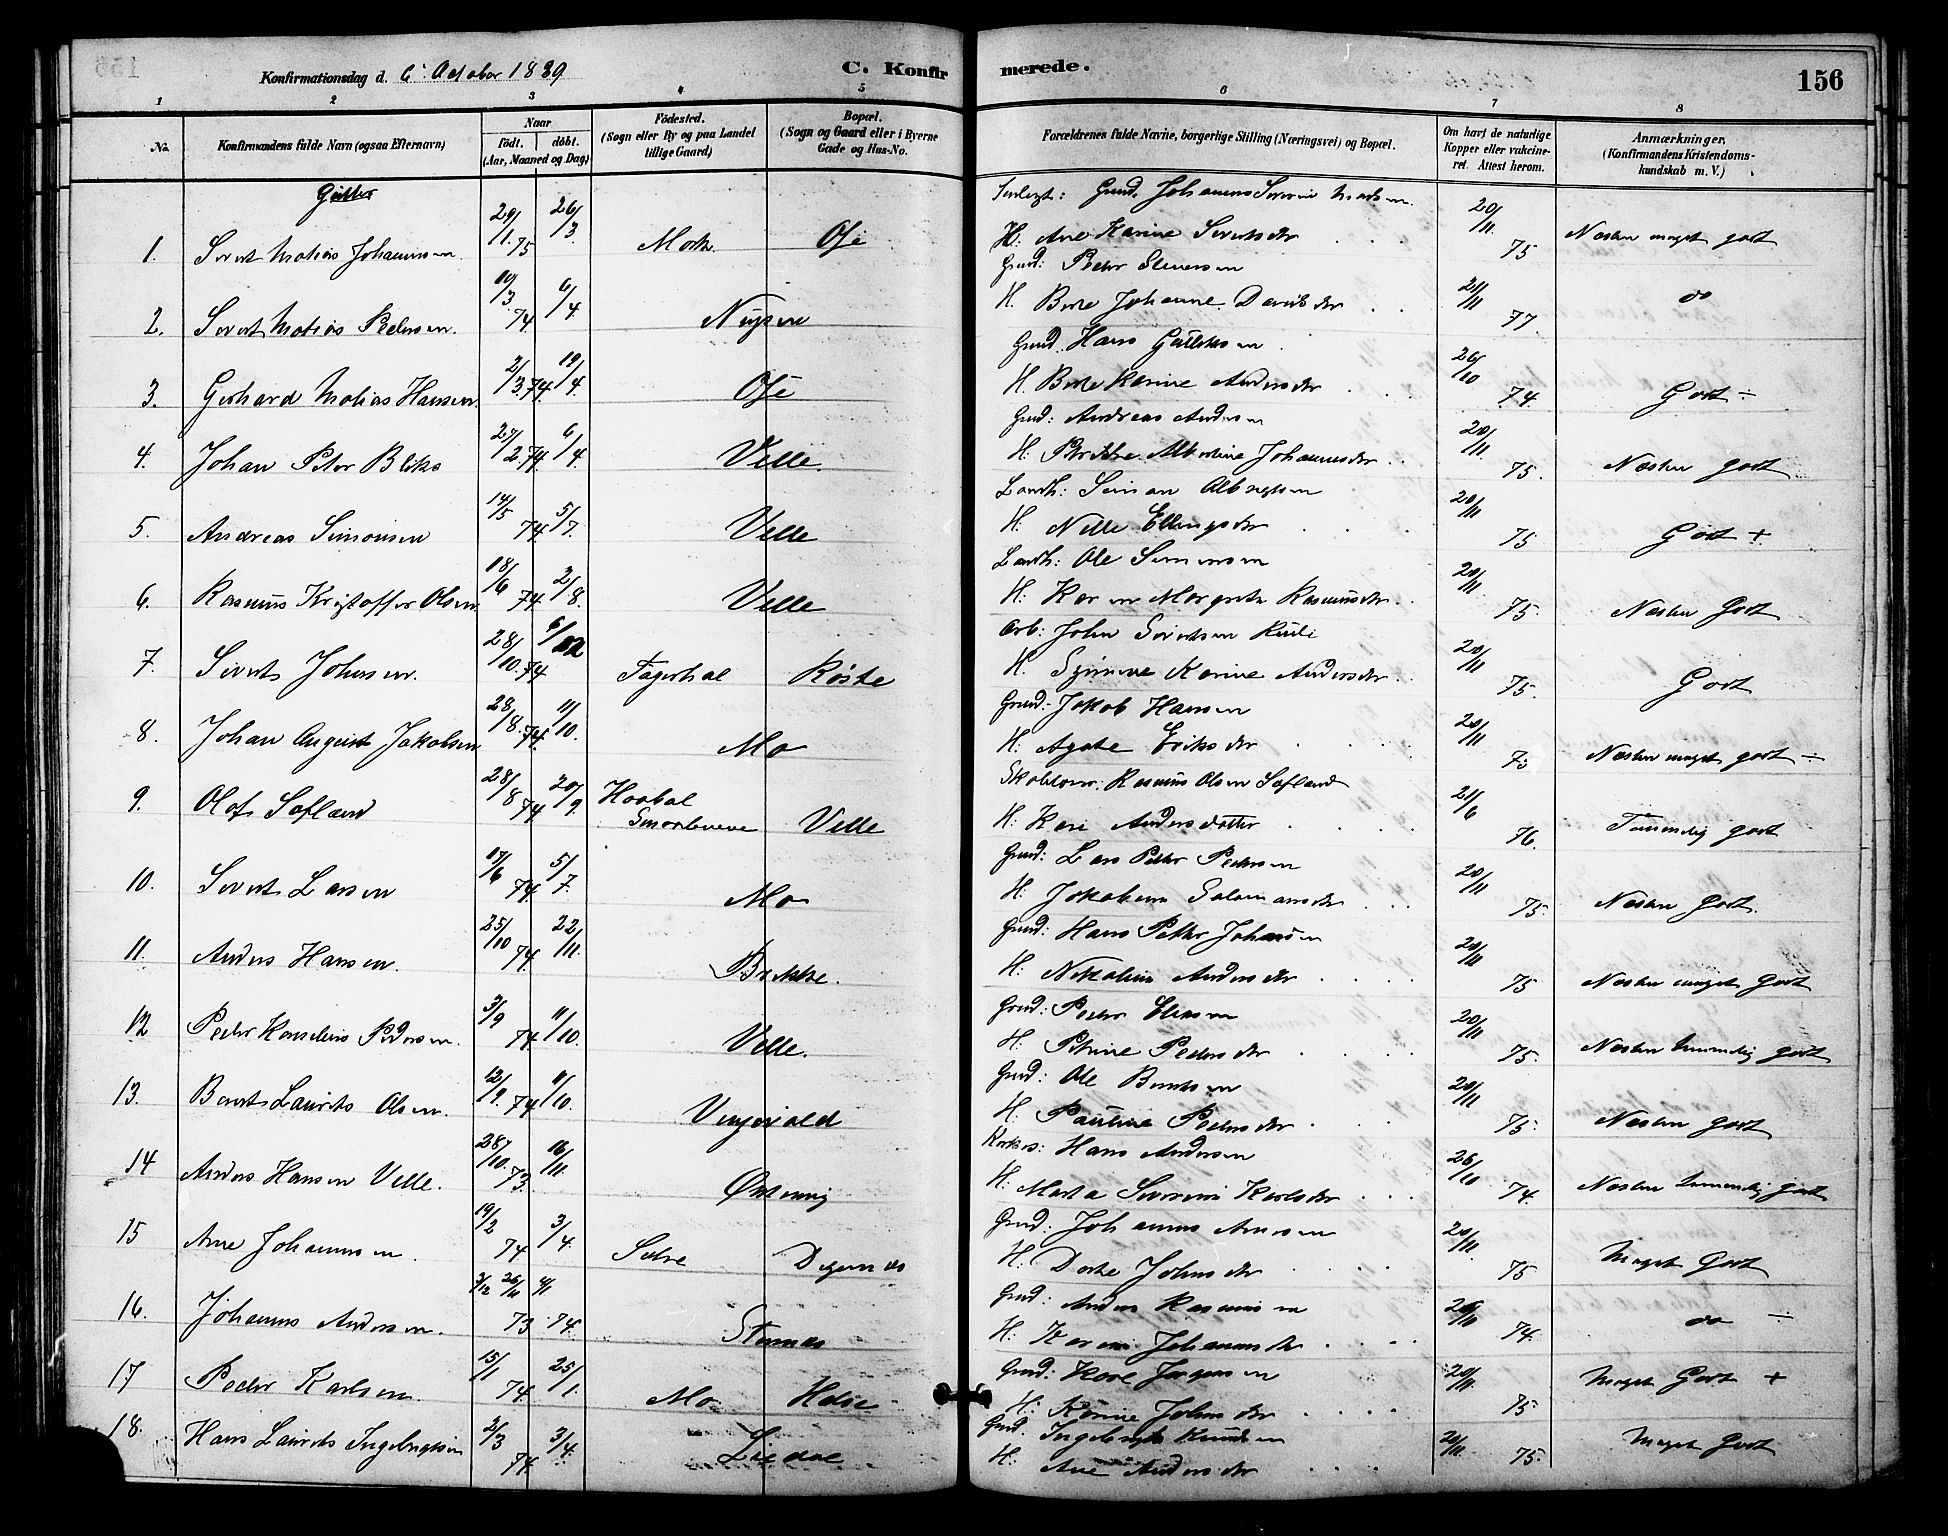 Konfirmationsdag d. 6 October 1889 C. Konfirmerede. 156
1 2 3 4 5 6 7 8
No. Konfirmandens fulde Navn (ogsaa Efternavn) Naar født. døbt. (Aar, Maaned og Dag) Fødested. (Sogn eller By og paa Landet tillige Gaard) Bopæl. (Sogn og Gaard eller i Byerne Gade og Hus-No. Forældrenes fulde Navne, borgerlige Stilling (Næringsvei) og Bopæl. Om havt de naturlige Kopper eller vakcineret. Attest herom. Anmærkninger. (Konfirmandens Kristendomskundskab m. V.)
Gutter
1. Sivert Matias Johannsen 29/1 75 26/3 Mork Ose Gmd. Johannes Severin Madsen H: Ane Karine Sivertsdr 20/11 75 Næsten meget godt
2. Sivert Matias Pedersen 74 6/4 Gmd: Peder Steversen H. Berte Johanne Davidsdr 21/11 77. do
3. Gerhard Matias Hansen 2/3 74 19/4 Ose Gmd. Hans Gulliksen H. Berte Karine Andersdr 26/10 74. Godt ÷
4. Johan Peter Bliks 27/2 74 6/4 Velle Gmd: Andreas Andersen H. Albertine Johannesdr 20/11 75. Næsten godt
5. Andreas Simonsen 14/5 74 5/7. Velle Simon Albregtsen H. Nille Ellingsdr 20/11 75 Godt +
6. Rasmus Kristoffer Olsen 18/6 74 2/8. Velle Ole Simonsen H: Karen Margrete Rasmusdr. 20/11 75. Næsten Godt
7. Sivert Johnsen. 28/10. 74 6/12 Fagerhal Røste Arb: John Sivertsen H. Karine Andersdr. 20/11 75. Godt
8. Johan August Jakobsen 28/8. 74. 11/10. Mo Gmd: Jakob Hansen H: Agate Eriksdr 20/11 Næsten meget godt ÷
9. Olaf Sætland 28/8 74 20/9. Velle Rasmus Olsen Sætland H: Kari Andersdatter 21/6 76. Temmelig godt
10. Sivert Larsen 17/6 74 5/7. Mo Gmd: Lars Peter Pedersen H: Jakobine Salomonsdr 20/11 75. Næsten Godt.
11. Anders Hansen. 25/10 74. 22/11. Brekke. Gmd: Hans Petter Johansen H: Nikoline Andersdr 20/11 75 Næsten meget Godt
12 Peder Kornelius Pedersen. 3/9 74 11/10. Velle. Gmd: Peder Eliasen H: Petrine Pedersdr 20/11 75. Næsten temmelig godt
13. Bernt Laurits Olsen. 12/9. 74 11/10. Vengevald Gmd: Ole Berntsen H. Pauline Pedersdr 20/11 75. Næsten godt
14 Anders Hansen Velle. 28/10. 73. 16/11. Hans Andersen H: Marta Severine Karlsdr 26/10 74. Næsten temmelig godt
15 Arne Johannsen. 19/2 74 3/4. Sætre Digernes Gmd: Johannes Arnesen H: Dorte Johnsdr 20/11 75 Meget Godt
16. Johannes Andersen. 73 74. Stennes Gmd: Anders Rasmussen H: Karen Johannesdr 26/10 74. do ÷
17 Peder Karlsen. 15/1 74. 25/1. Mo Gmd: Jørgensen H: Johnsdr 20/11 75. Meget Godt +
18. Hans Laurits Ingebrigtsen 2/3 74 3/4. Lidal Gmd. Ingebrigt Knudsen H: Ane Andersdr 75. Meget Godt